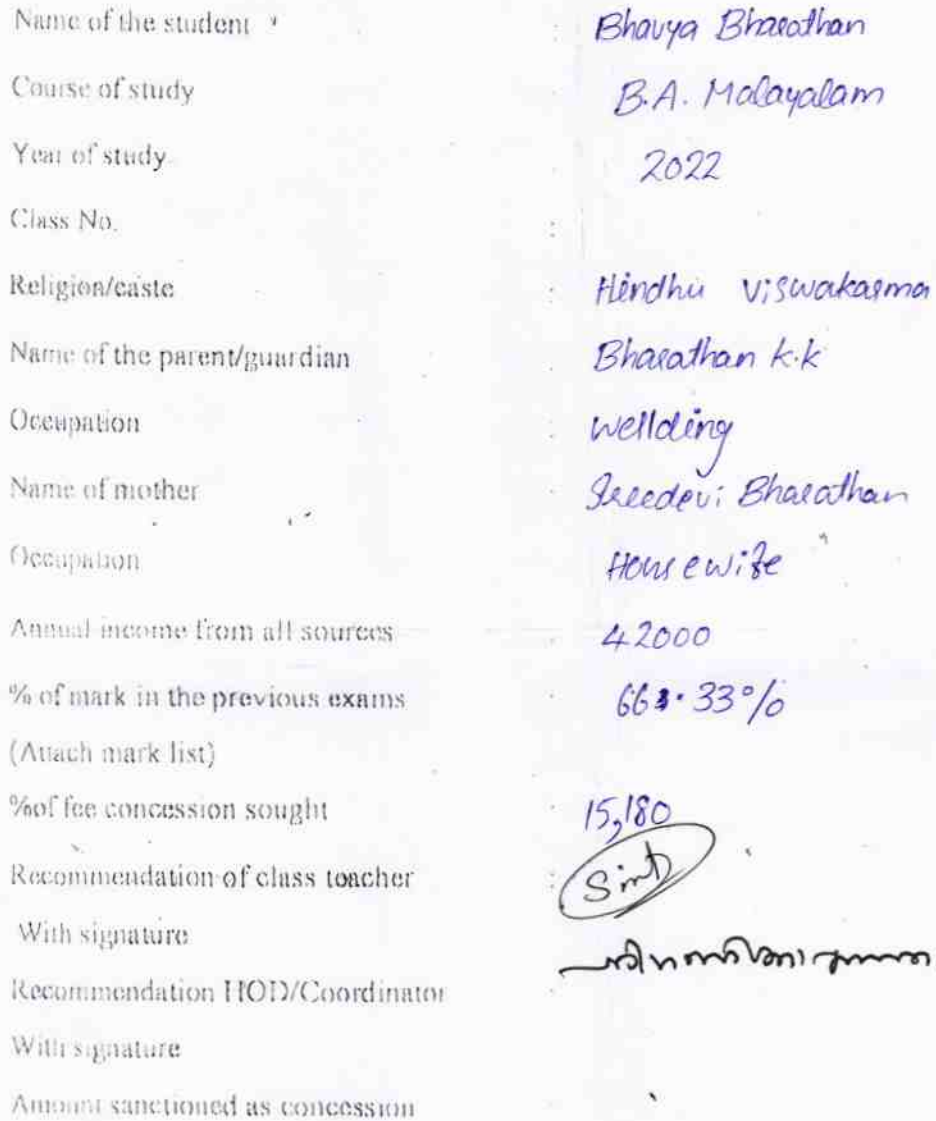 Name of the student : Bhavya Bharathan
Course of study : B.A. Malayalam
Year of study : 2022
Class No. :
Religion/caste : Hindhu Viswakarma
Name of the parent/guardian : Bharathan k.k
Occupation : wellding
Name of mother : Sreedevi Bharathan
Occupation : Housewife
Annual income from all sources : 42000
% of mark in the previous exams : 66.33%
(Attach mark list)
%of fee concession sought : 15,180
Recommendation of class teacher :
With signature
Recommendation HOD/Coordinator
With signature
Amount sanctioned as concession